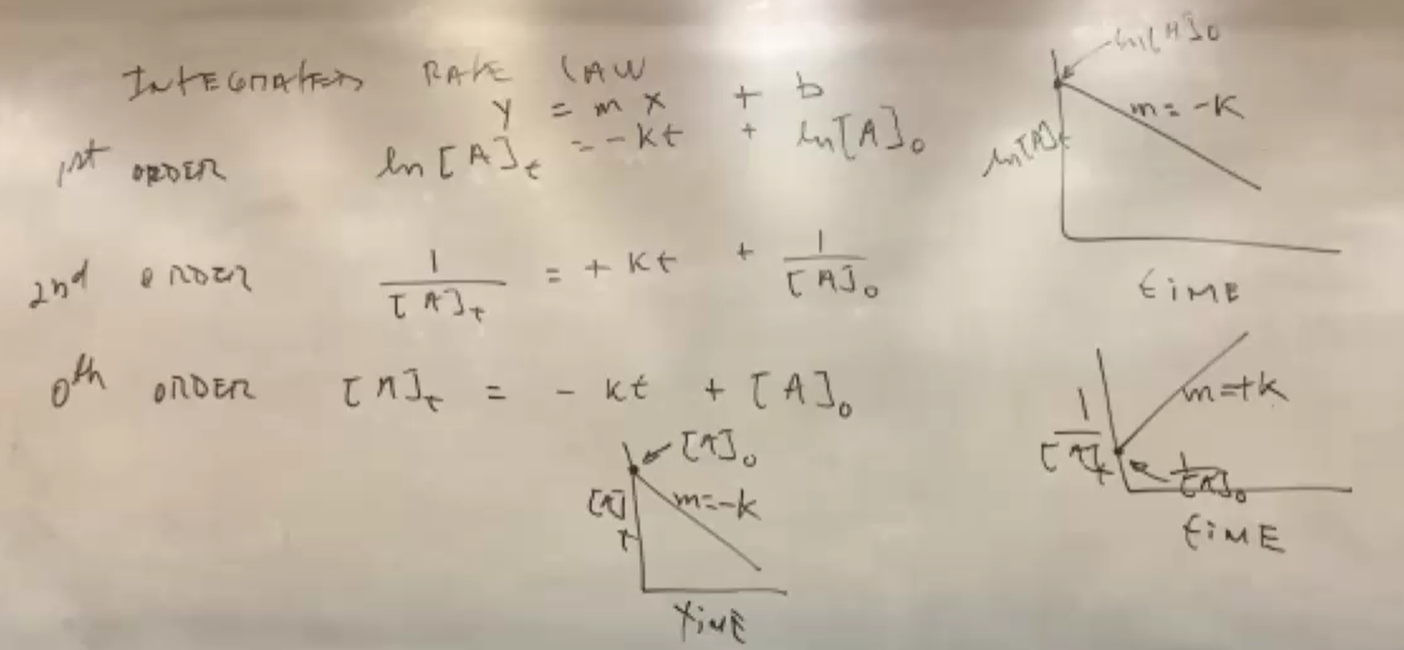 INTEGRATED RATE LAW
y = m x + b
1st ORDER ln [A]t = -kt + ln[A]0
2nd ORDER 1/[A]t = + kt + 1/[A]0
0th ORDER [A]t = - kt + [A]0
ln[A]0
m = -k
ln[A]t
time
m=+k
1/[A]t
1/[A]0
time
[A]0
[A]t
m=-k
time